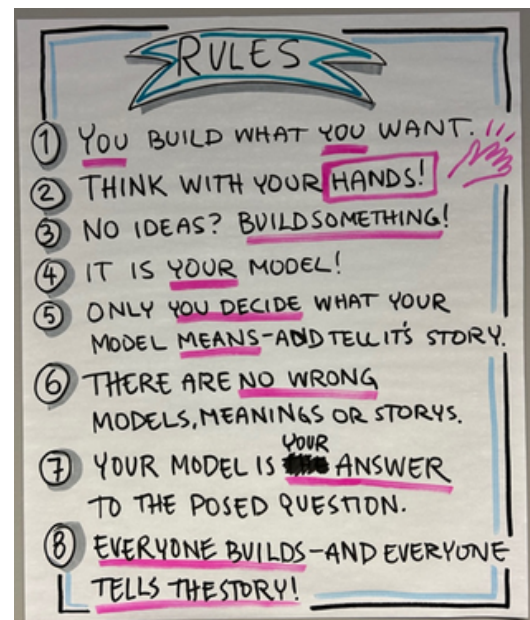 RULES
1 YOU BUILD WHAT YOU WANT.
2 THINK WITH YOUR HANDS!
3 NO IDEAS? BUILDSOMETHING!
4 IT IS YOUR MODEL!
5 ONLY YOU DECIDE WHAT YOUR
MODEL MEANS-AND TELL IT'S STORY.
6 THERE ARE NO WRONG
MODELS, MEANINGS OR STORYS.
7 YOUR MODEL IS YOUR ANSWER
TO THE POSED QUESTION.
8 EVERYONE BUILDS-AND EVERYONE
TELLS THESTORY!